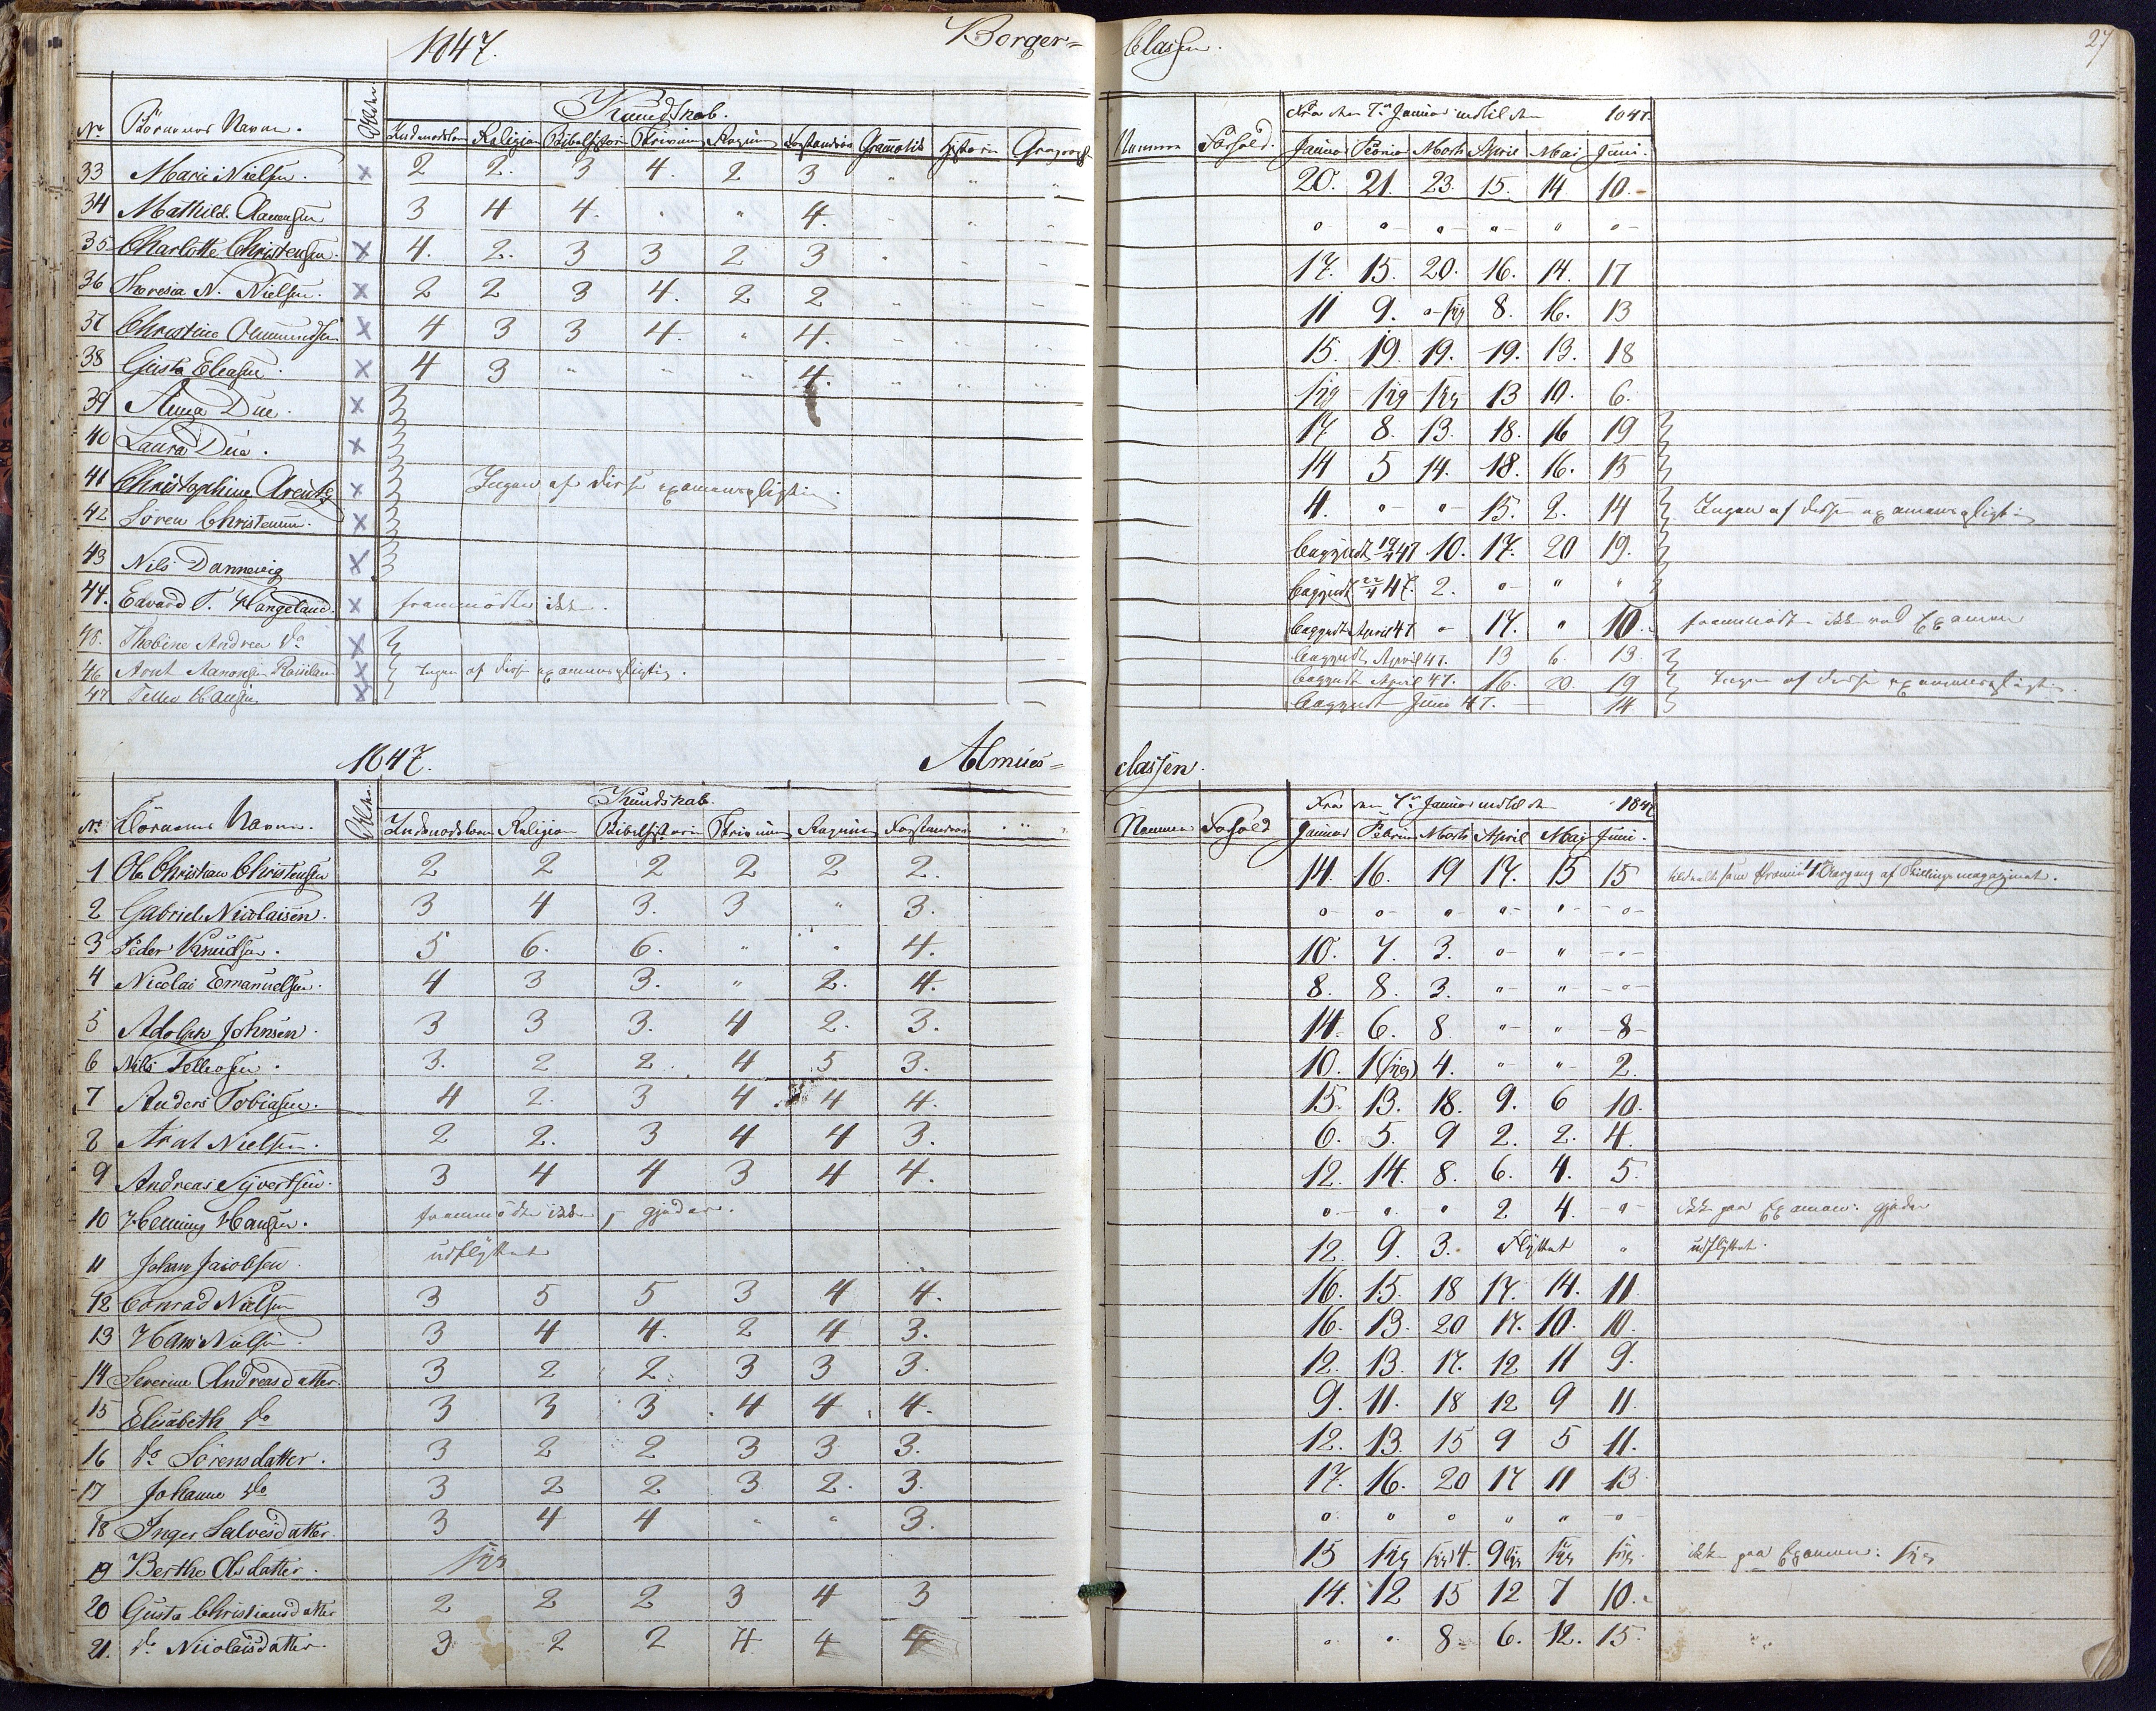 1847. Borger= Classen. 27
Kundskab. Fra den 7de Januar indtil den 1847.
No Börnenes Navne. Alder Indenadslæsn Religion Bibelhistorie Skrivning Regning Forstandsøv Gramatik Historie Geograph Nemme Forhold. Januar Februar Marts April Mai Juni.
33 Marie Nielsen. x 2 2. 3 4. 2 3 " " " 20. 21. 23. 15. 14 10.
34 Mathilde Clausen 3 4 4. " " 4. " " " " " " " " "
35 Charlotte Christensen. x 4. 2. 3 3 2 3 " " " 17. 15. 20. 16. 14. 17
36 Theresia N. Nielsen. x 2 2 3 4. 2 2 " " " 11 9. " syg 8. 16. 13
37 Christine x 4 3 3 4. " 4. " " " 15. 19. 19. 19. 13. 18
38 Gusta Eliasen. x 4 3 " " " 4. " " " syg syg syg 13 10. 6.
39 Anna Due. x 17 8. 13. 18. 16 19
40 Laura Due. x 14 5 14. 18. 16. 15
41 Christophine Arentz x Ingen af disse examenspligtig. 4. " " 15. 2. 14 Ingen af disse examenspligtig
42 Sören Christensen. x begyndt 19/4 47 10. 17. 20 19.
43 Nils Dannevig x begyndt 22/4 47. 2. " " "
44. Edvard T. Hangeland. x fremmödte ikke. begyndt April 47 " 17. " 10. fremmödte ikke ved Examen
45. Thobine Andrea do x begyndt April 47. 13 6. 13.
46 Arnt Aanonsen x Ingen af disse examenspligtig. begyndt April 47. 16. 20. 19 Ingen af disse examenspligtig.
47 Tellev Hansen x begyndt Juni 47. 14
1847. Almues= classen.
Kundskab. Fra den 7de Januar indtil den 1847
No Börnenes Navne. Alder. Indenadslæsn Religion Bibelhistorie Skrivning Regning Forstandsøv " " Nemme Forhold Januar Februar Marts April Mai Juni.
1 Ole Christian Christensen 2 2 2 2 2 2. 14. 16. 19 17. 15 15 som Præmie 1 Aargang af Skillingsmagazinet.
2 Gabriel Nicolaisen. 3 4 3. 3 " 3. " " " " " "
3 Peder Knudsen. 5 6. 6. " " 4. 10. 7. 3. " " "
4 Nicolai Emanuelsen. 4 3 3. " 2. 4. 8. 8. 3. " " "
5 Adolph Johnsen. 3 3 3. 4 2. 3. 14. 6. 8 " " 8
6 Nils Tellefsen. 3. 2 2. 4 5 3. 10. 1 (syg) 4. " " 2.
7 Anders Tobiasen. 4 2. 3 4 4 4. 15. 13. 18. 9. 6 10.
8 Arnt Nielsen. 2 2. 3 4 4 3. 6. 5. 9 2. 2. 4.
9 Andreas Syvertsen. 3 4 4 3 4 4. 12. 14. 8. 6. 4. 5.
10 Henning Hansen. fremmödte ikke, gjeder. " " " 2 4. " ikke paa Examen: gjeder
11 Johan Jacobsen. udflyttet 12. 9. 3. Flyttet " udflyttet.
12 Conrad Nielsen 3 5 5 3 4 4. 16. 15. 18 17. 14. 11
13 Hans Nielsen. 3 4 4. 2 4 3. 16. 13. 20 17. 10. 10.
14 Severine Andreasdatter. 3 2 2. 3 3 3. 12. 13. 17. 12 11 9.
15 Elisabeth do 3 3 3. 4 4. 4. 9. 11. 18 12 9 11.
16 do Sörensdatter. 3 2 2 3 3 3. 12. 13. 15 9 5 11.
17 Johanne do 3 2 2 3 2. 3. 17. 16. 20 17 11 13
18 Inger Salvesdatter. 3 4 4 " " 3. " " " " " "
19 Berthe Olsdatter. syg 15 syg syg 4. 9 syg syg syg. ikke paa Examen: syg
20 Gusta Christiansdatter 2 2 2 3 4 3 14. 12 15 12 7 10.
21. do Nicolaisdatter. 3 2 2 4 4 4 " " 8. 6. 12. 15.